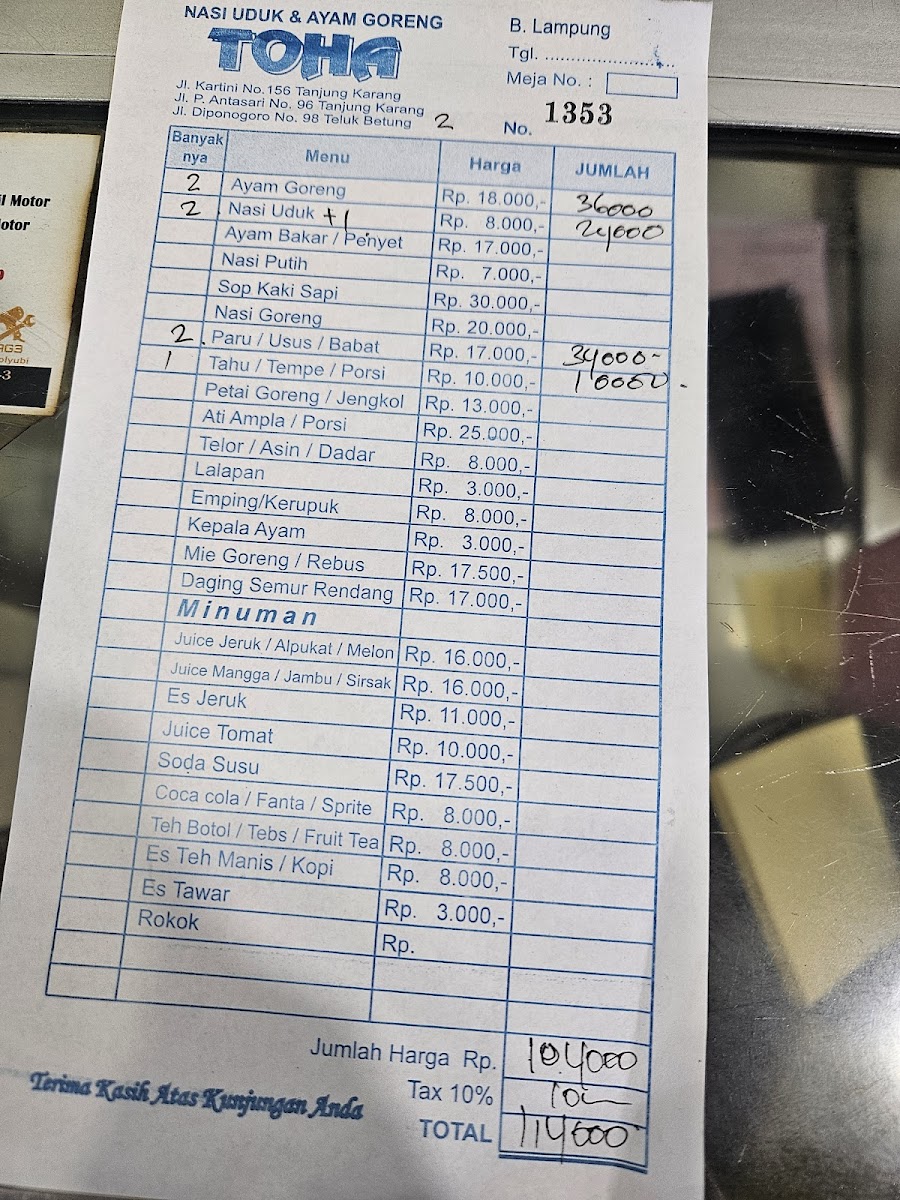 NASI UDUK & AYAM GORENG
TOHA
Jl. Kartini No.156 Tanjung Karang
Jl. P. Antasari No. 96 Tanjung Karang
Jl. Diponogoro No. 98 Teluk Betung
2
B. Lampung
Tgl. ..........................
Meja No. :
No. 1353
Banyak nya Menu Harga JUMLAH
2 Ayam Goreng Rp. 18.000,- 36000
2 Nasi Uduk +1 Rp. 8.000,- 24000
Ayam Bakar / Penyet Rp. 17.000,-
Nasi Putih Rp. 7.000,-
Sop Kaki Sapi Rp. 30.000,-
Nasi Goreng Rp. 20.000,-
2 Paru / Usus / Babat Rp. 17.000,- 34000-
1 Tahu / Tempe / Porsi Rp. 10.000,- 10000-
Petai Goreng / Jengkol Rp. 13.000,-
Ati Ampla / Porsi Rp. 25.000,-
Telor / Asin / Dadar Rp. 8.000,-
Lalapan Rp. 3.000,-
Emping/Kerupuk Rp. 8.000,-
Kepala Ayam Rp. 3.000,-
Mie Goreng / Rebus Rp. 17.500,-
Daging Semur Rendang Rp. 17.000,-
Minuman
Juice Jeruk / Alpukat / Melon Rp. 16.000,-
Juice Mangga / Jambu / Sirsak Rp. 16.000,-
Es Jeruk Rp. 11.000,-
Juice Tomat Rp. 10.000,-
Soda Susu Rp. 17.500,-
Coca cola / Fanta / Sprite Rp. 8.000,-
Teh Botol / Tebs / Fruit Tea Rp. 8.000,-
Es Teh Manis / Kopi Rp. 8.000,-
Es Tawar Rp. 3.000,-
Rokok Rp.
Jumlah Harga Rp. 104000
Tax 10%
TOTAL 114000
Terima Kasih Atas Kunjungan Anda
Motor